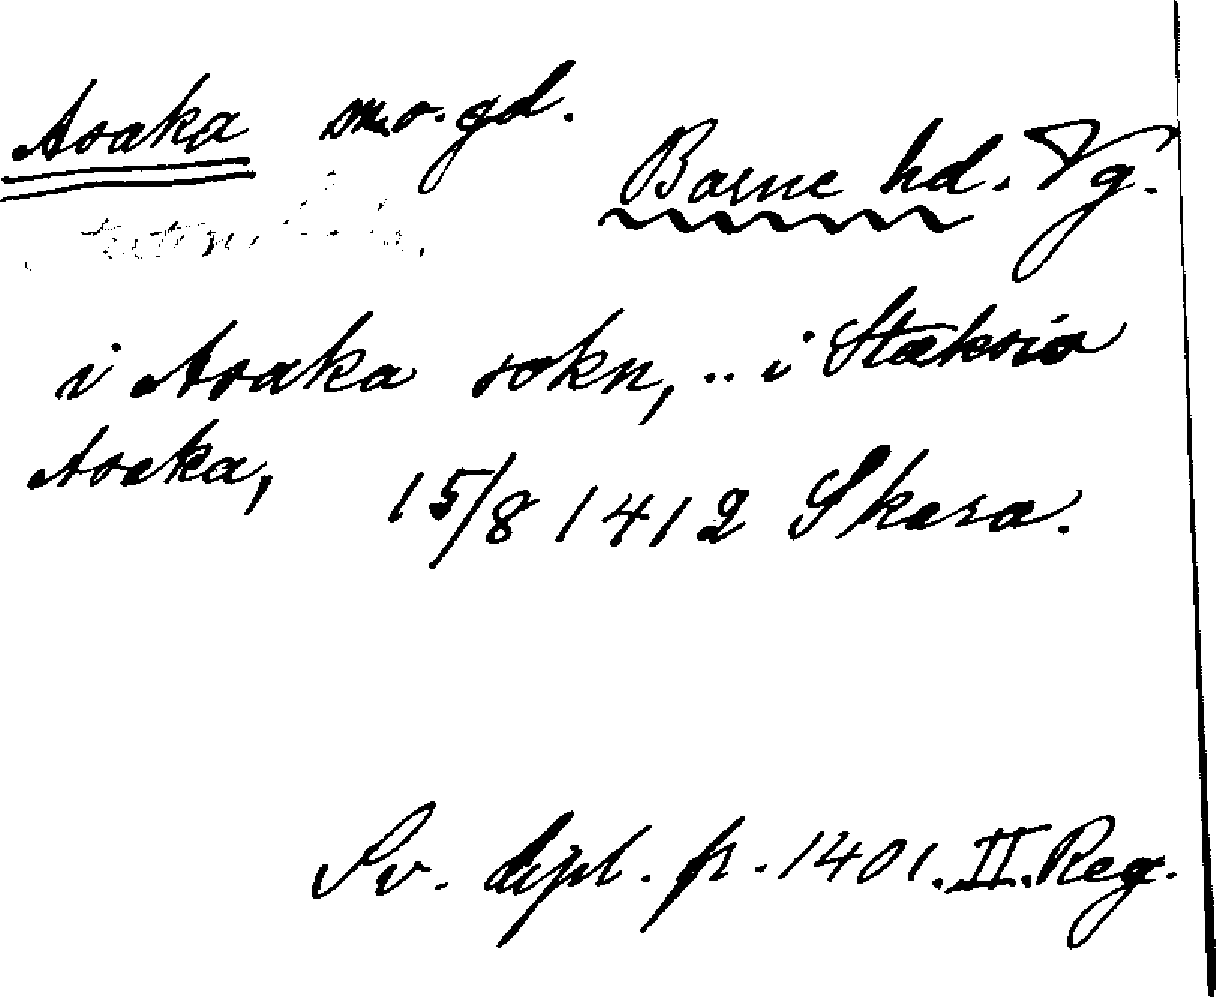 Asaka sn. o. gd.
Barne hd. Vg.
i Asaka sokn, .. i Stæksio
Asaka, 15/8 1412 Skara.
Sv. dipl. fr. 1401. II. Reg.